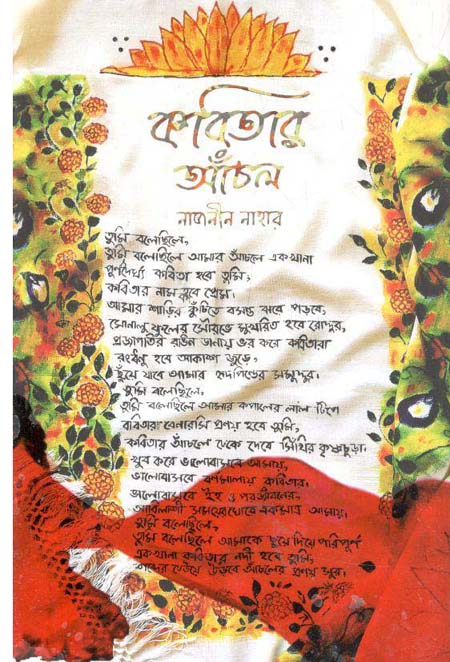 কবিতার
আঁচল
নাজনীন নাহার
তুমি বলেছিলে,
তুমি বলেছিলে আমার আঁচলে একখানা
পূর্ণদৈর্ঘ্য কবিতা হবে তুমি,
কবিতার নাম হবে প্রেম।
আমার শাড়ির কুঁচিতে বসন্ত ঝরে পড়বে,
সোনালু ফুলের সৌরভে মুখরিত হবে রোদ্দুর,
প্রজাপতির রঙিন ডানায় ভর করে কবিতারা
রংধনু হবে আকাশ জুড়ে,
ছুঁয়ে যাবে আমার হৃদপিণ্ডের সমুদ্দুর।
তুমি বলেছিলে,
তুমি বলেছিলে আমার কপালের লাল টিপে
কবিতারা বেনারসি প্রণয় হবে তুমি,
কবিতার আঁচলে ঢেকে দেবে সিঁথির কৃষ্ণচূড়া।
খুব করে ভালোবাসবে আমায়,
ভালোবাসবে বর্ণমালায় কবিতার,
ভালোবাসবে ইহ ও পরজীবনের,
সময়ের ঘোরে একমাত্র আমায়।
তুমি বলেছিলে,
তুমি বলেছিলে আমাকে ছুঁয়ে দিয়ে পরিপূর্ণ
একখানা কবিতার নদী হবে তুমি,
ঢেউয়ে উড়বে আঁচলের প্রণয় সুখ।